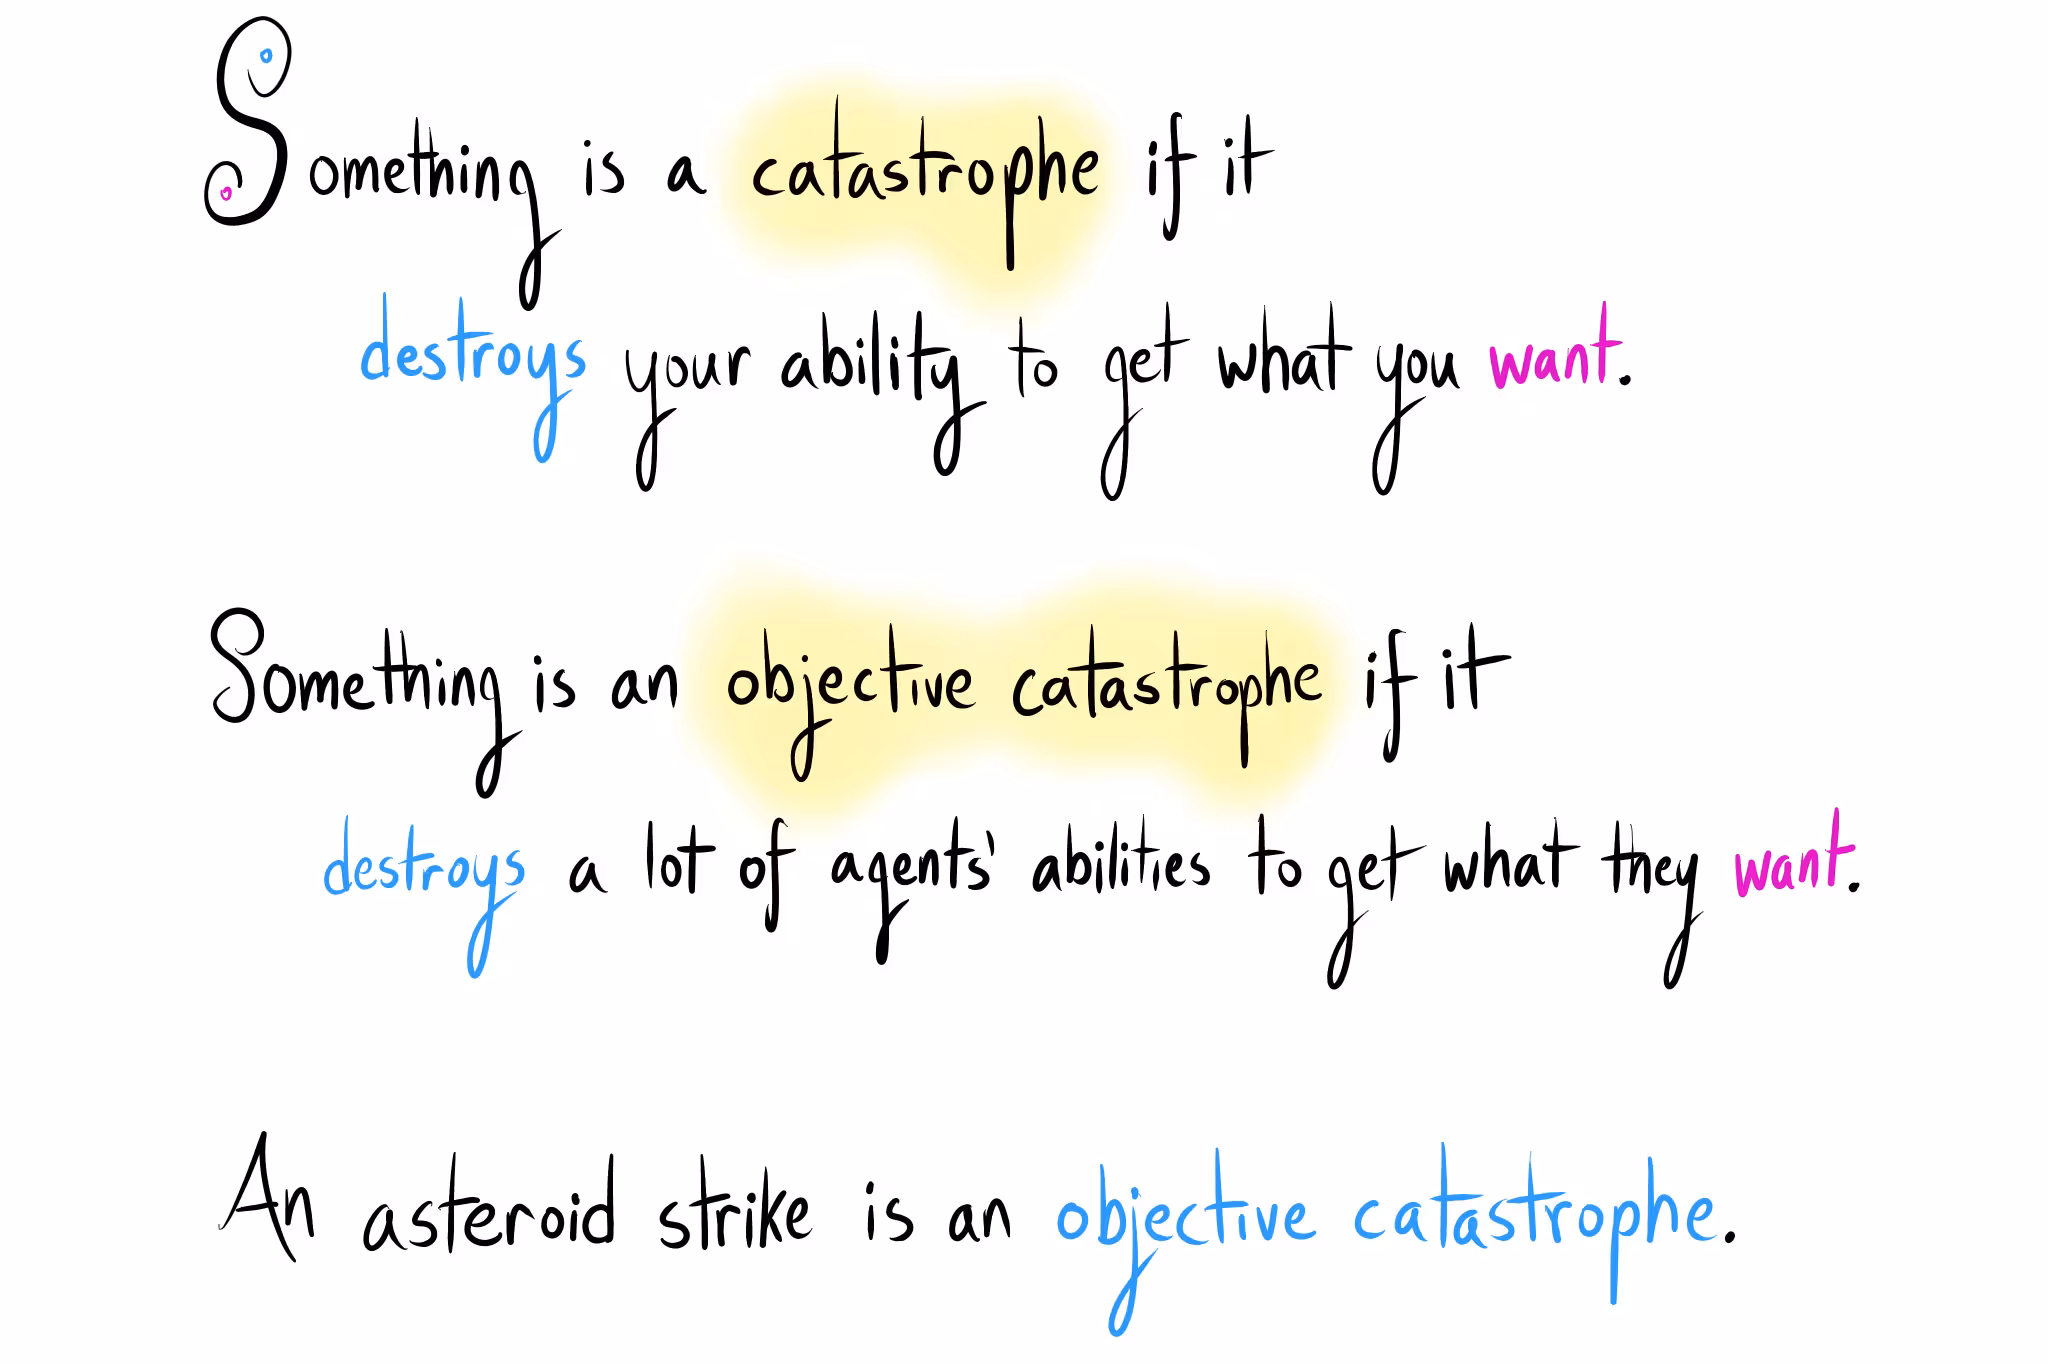 Something is a catastrophe if it
destroys your ability to get what you want.
Something is an objective catastrophe if it
destroys a lot of agents' abilities to get what they want.
An asteroid strike is an objective catastrophe.